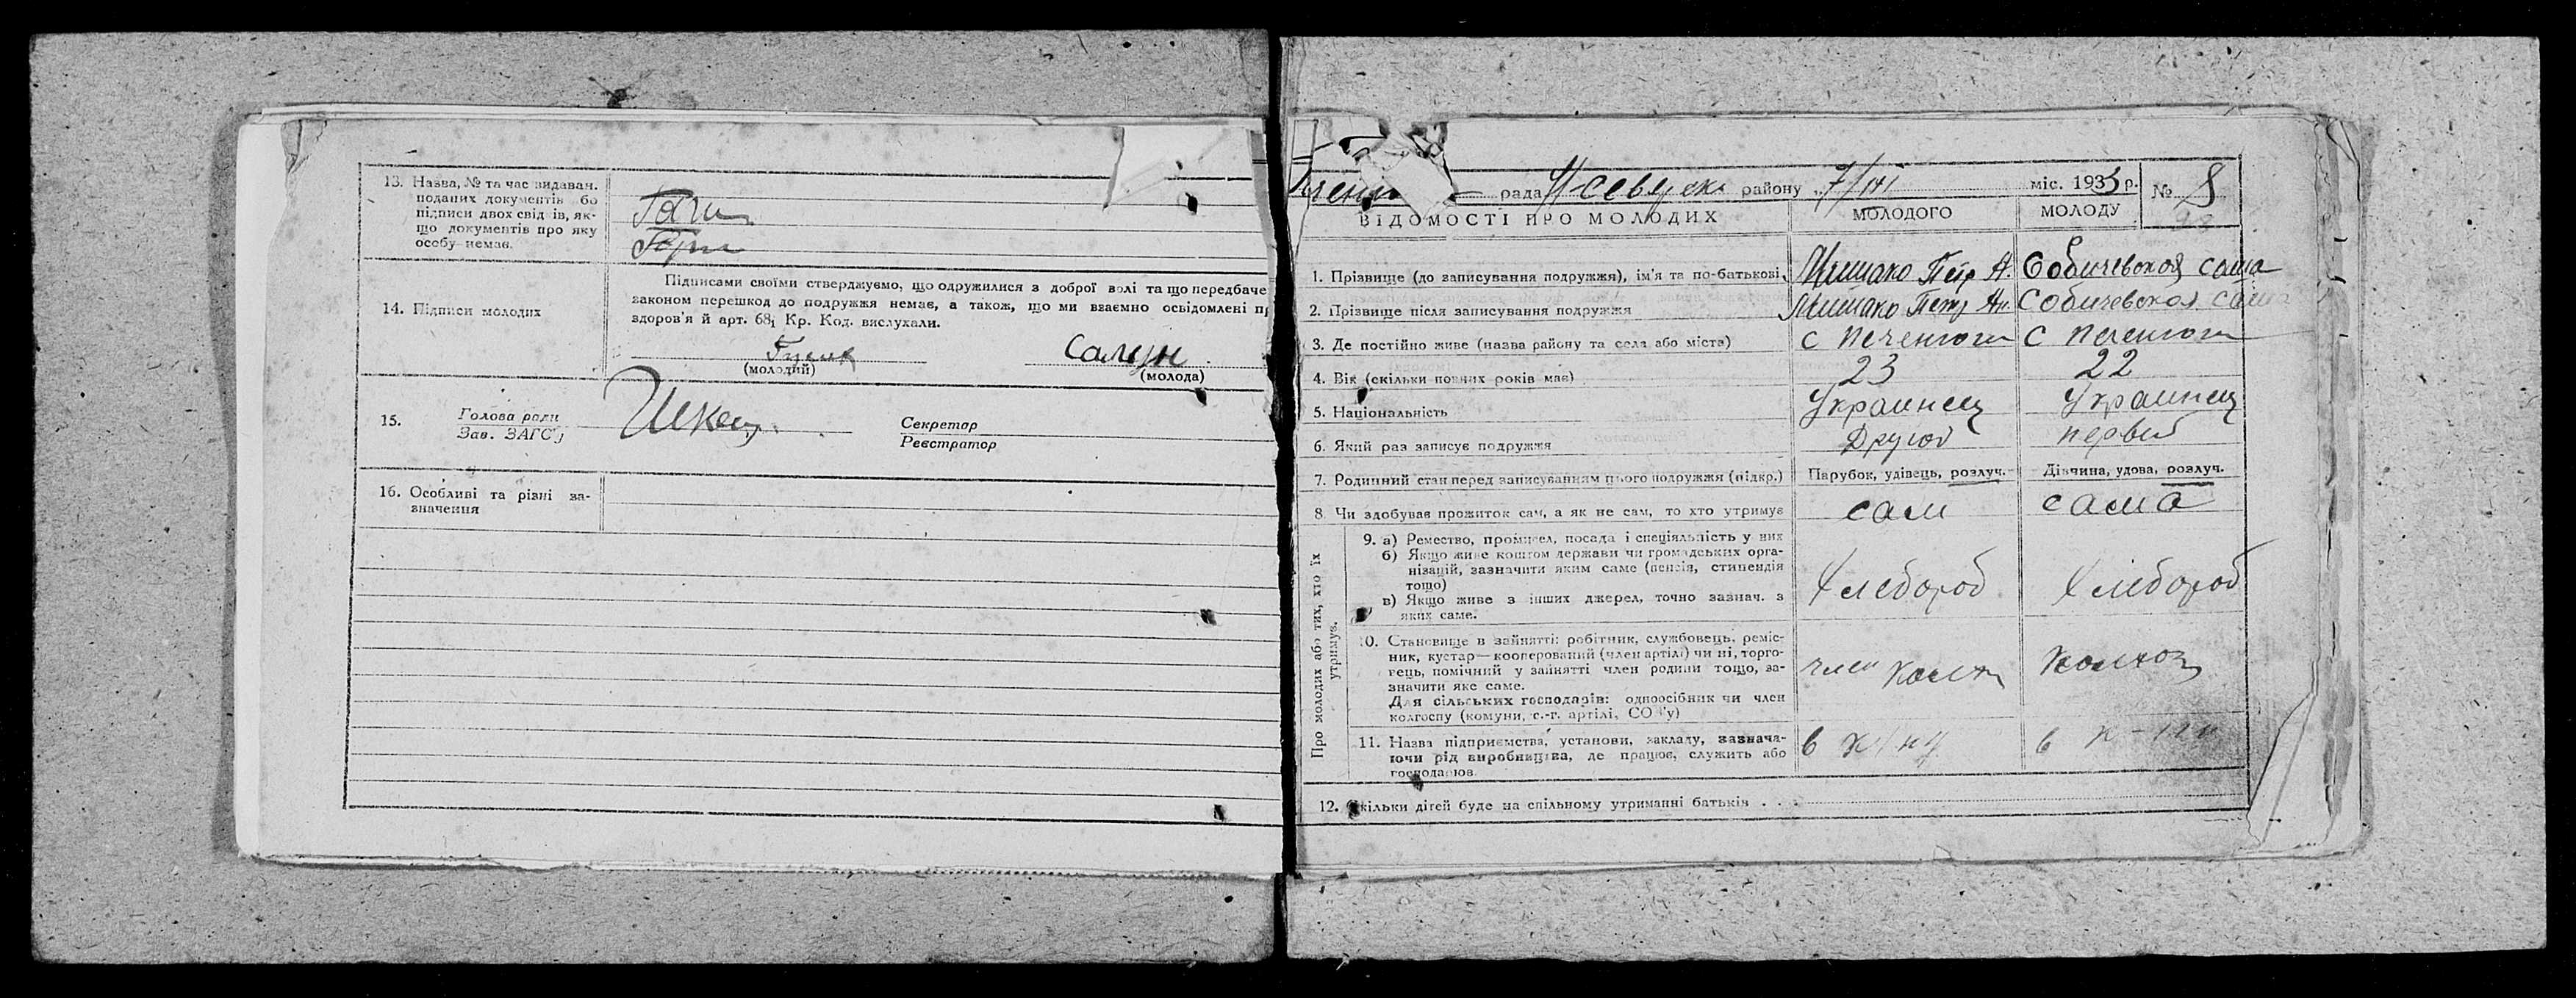 13. Назва, № та час видаван.
поданих документів або
підписи двох свідків, як-
що документів про яку
особу немає.
Підписами своїми стверджуємо, що одружилися з доброї волі та що передбаче
законом перешкод до подружжя немає, а також, що ми взаємно освідомлені п
здоров'я й арт. 68₁ Кр. Код. вислухали.
14. Підписи молодих
(молодий)
(молода)
15. Голова ради
Зав. ЗАГС'у
Секретар
Реєстратор
16. Особливі та різні за-
значення
рада Н Северск району 7/III міс. 1933 р. № 8
ВІДОМОСТІ ПРО МОЛОДИХ МОЛОДОГО МОЛОДУ
1. Прізвище (до записування подружжя), ім'я та по-батькові Петр А. Собичевская Саша
2. Прізвище після записування подружжя Петр Ан. Собичевская Саша
3. Де постійно живе (назва району та села або міста) с Печенюги с Печенюги
4. Вік (скільки повних років має) 23 22
5. Національність Украинец Украинец
6. Який раз записує подружжя Другой первый
7. Родинний стан перед записуванням цього подружжя (підкр.) Парубок, удівець, розлуч. Дівчина, удова, розлуч.
8. Чи здобував прожиток сам, а як не сам, то хто утримує сам сама
Про молодих або тих, хто їх утримує.
9. а) Ремество, промисел, посада і спеціяльність у них
б) Якщо живе коштом держави чи громадських орга-
нізацій, зазначити яким саме (пенсія, стипендія
тощо)
в) Якщо живе з інших джерел, точно зазнач. з
яких саме.
Хлебороб Хлебороб
10. Становище в зайнятті: робітник, службовець, реміс-
ник, кустар—кооперований (член артілі) чи ні, торго-
вець, помічний у зайнятті член родини тощо, за-
значити яке саме.
Для сільських господарів: одноосібник чи член
колгоспу (комуни, с.-г. артілі, СОЗ'у)
член колхоз
11. Назва підприємства, установи, закладу, зазнача-
ючи рід виробництва, де працює, служить або
господарює
12. Скільки дітей буде на спільному утриманні батьків . . .